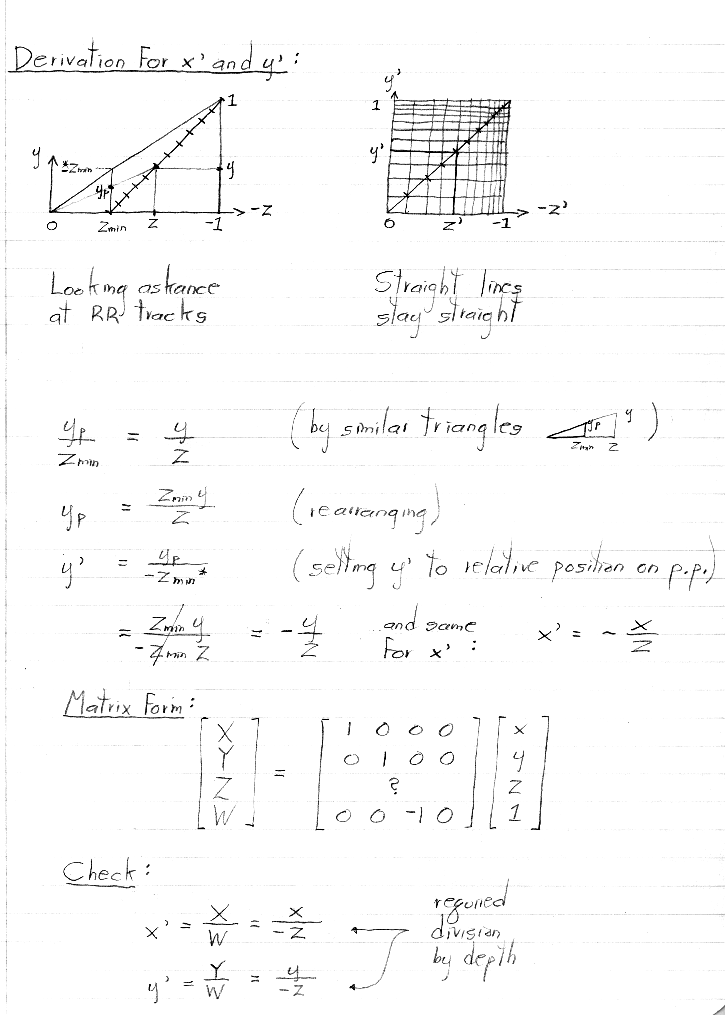 Derivation For x' and y' :
y 0 *-Zmin yp Zmin Z -1 -Z 1 y
y' 1 y' 0 z' -1 -Z'
Looking askance
at RR tracks
Straight lines
stay straight
yp/Zmin = y/Z (by similar triangles yp y Zmin Z )
yp = Zmin y/Z (rearranging)
y' = yp/-Zmin* (setting y' to relative position on p.p.)
= Zmin y/-Zmin Z = - y/Z and same for x' : x' = - x/Z
Matrix Form:
[X Y Z W] = [1 0 0 0
0 1 0 0
?
0 0 -1 0] [x y z 1]
Check :
x' = X/W = x/-Z
y' = Y/W = y/-Z
required
division
by depth